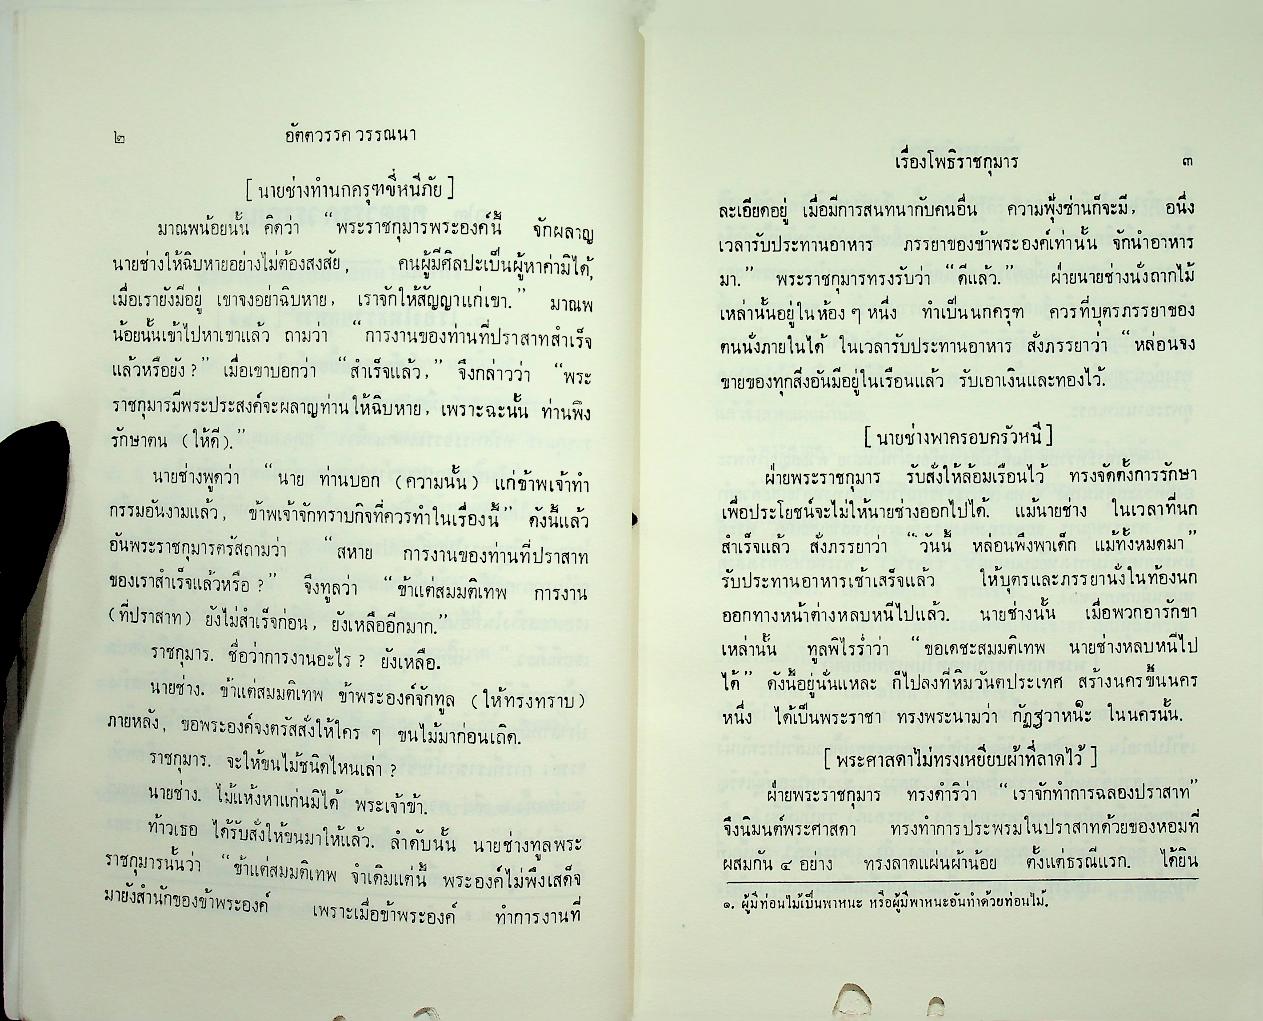 ๒
อัตตวรรค วรรณนา
[ นายช่างทำนกครุฑขี่หนีภัย ]
มาณพน้อยนั้น คิดว่า “พระราชกุมารพระองค์นี้ จักผลาญ
นายช่างให้ฉิบหายอย่างไม่ต้องสงสัย, คนผู้มีศิลปะเป็นผู้หาค่ามิได้,
เมื่อเรายังมีอยู่ เขาจงอย่าฉิบหาย, เราจักให้สัญญาแก่เขา.” มาณพ
น้อยนั้นเข้าไปหาเขาแล้ว ถามว่า “การงานของท่านที่ปราสาทสำเร็จ
แล้วหรือยัง ?” เมื่อเขาบอกว่า “สำเร็จแล้ว,” จึงกล่าวว่า “พระ
ราชกุมารมีพระประสงค์จะผลาญท่านให้ฉิบหาย, เพราะฉะนั้น ท่านพึง
รักษาตน (ให้ดี).”
นายช่างพูดว่า “นาย ท่านบอก (ความนั้น) แก่ข้าพเจ้าทำ
กรรมอันงามแล้ว, ข้าพเจ้าจักทราบกิจที่ควรทำในเรื่องนี้” ดังนี้แล้ว
อันพระราชกุมารตรัสถามว่า “สหาย การงานของท่านที่ปราสาท
ของเราสำเร็จแล้วหรือ ?” จึงทูลว่า “ข้าแต่สมมติเทพ การงาน
(ที่ปราสาท) ยังไม่สำเร็จก่อน, ยังเหลืออีกมาก.”
ราชกุมาร. ชื่อว่าการงานอะไร ? ยังเหลือ.
นายช่าง. ข้าแต่สมมติเทพ ข้าพระองค์จักทูล (ให้ทรงทราบ)
ภายหลัง, ขอพระองค์จงตรัสสั่งให้ใคร ๆ ขนไม้มาก่อนเถิด.
ราชกุมาร. จะให้ขนไม้ชนิดไหนเล่า ?
นายช่าง. ไม้แห้งหาแก่นมิได้ พระเจ้าข้า.
ท้าวเธอ ได้รับสั่งให้ขนมาให้แล้ว. ลำดับนั้น นายช่างทูลพระ
ราชกุมารนั้นว่า “ข้าแต่สมมติเทพ จำเดิมแต่นี้ พระองค์ไม่พึงเสด็จ
มายังสำนักของข้าพระองค์ เพราะเมื่อข้าพระองค์ ทำการงานที่
เรื่องโพธิราชกุมาร
๓
ละเอียดอยู่ เมื่อมีการสนทนากับคนอื่น ความฟุ้งซ่านก็จะมี, อนึ่ง
เวลารับประทานอาหาร ภรรยาของข้าพระองค์เท่านั้น จักนำอาหาร
มา.” พระราชกุมารทรงรับว่า “ดีแล้ว.” ฝ่ายนายช่างนั่งถากไม้
เหล่านั้นอยู่ในห้อง ๆ หนึ่ง ทำเป็นนกครุฑ ควรที่บุตรภรรยาของ
ตนนั่งภายในได้ ในเวลารับประทานอาหาร สั่งภรรยาว่า “หล่อนจง
ขายของทุกสิ่งอันมีอยู่ในเรือนแล้ว รับเอาเงินและทองไว้.
[ นายช่างพาครอบครัวหนี ]
ฝ่ายพระราชกุมาร รับสั่งให้ล้อมเรือนไว้ ทรงจัดตั้งการรักษา
เพื่อประโยชน์จะไม่ให้นายช่างออกไปได้. แม้นายช่าง ในเวลาที่นก
สำเร็จแล้ว สั่งภรรยาว่า “วันนี้ หล่อนพึงพาเด็ก แม้ทั้งหมดมา”
รับประทานอาหารเช้าเสร็จแล้ว ให้บุตรและภรรยานั่งในท้องนก
ออกทางหน้าต่างหลบหนีไปแล้ว. นายช่างนั้น เมื่อพวกอารักขา
เหล่านั้น ทูลพิไรร่ำว่า “ขอเดชะสมมติเทพ นายช่างหลบหนีไป
ได้” ดังนี้อยู่นั่นแหละ ก็ไปลงที่หิมวันตประเทศ สร้างนครขึ้นนคร
หนึ่ง ได้เป็นพระราชา ทรงพระนามว่า กัฏฐวาหนะ๑ ในนครนั้น.
[ พระศาสดาไม่ทรงเหยียบผ้าที่ลาดไว้ ]
ฝ่ายพระราชกุมาร ทรงดำริว่า “เราจักทำการฉลองปราสาท”
จึงนิมนต์พระศาสดา ทรงทำการประพรมในปราสาทด้วยของหอมที่
ผสมกัน ๔ อย่าง ทรงลาดแผ่นผ้าน้อย ตั้งแต่ธรณีแรก. ได้ยิน
๑. ผู้มีท่อนไม้เป็นพาหนะ หรือผู้มีพาหนะอันทำด้วยท่อนไม้.